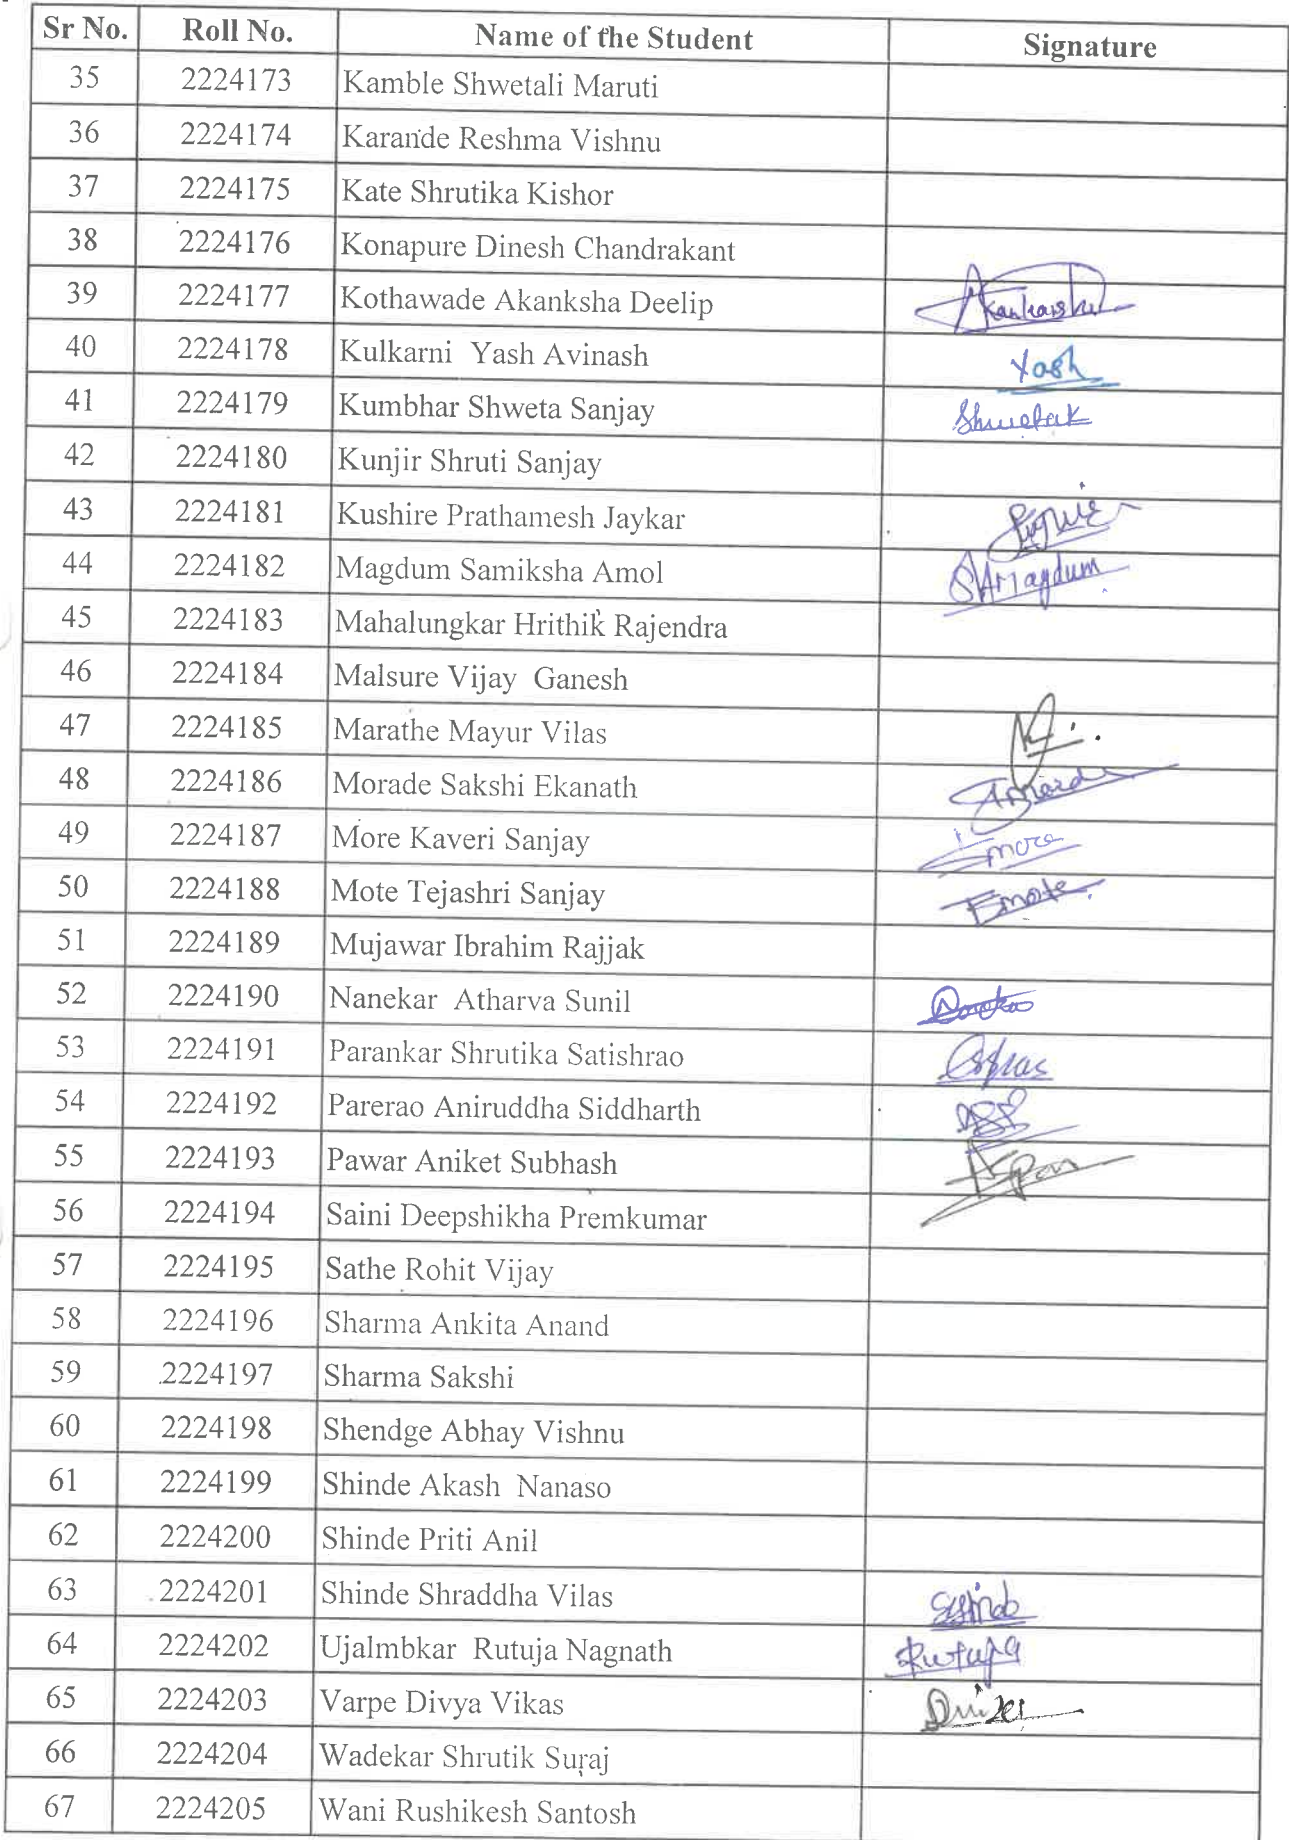 Sr No. Roll No. Name of the Student Signature
35 2224173 Kamble Shwetali Maruti
36 2224174 Karande Reshma Vishnu
37 2224175 Kate Shrutika Kishor
38 2224176 Konapure Dinesh Chandrakant
39 2224177 Kothawade Akanksha Deelip
40 2224178 Kulkarni Yash Avinash Yash
41 2224179 Kumbhar Shweta Sanjay
42 2224180 Kunjir Shruti Sanjay
43 2224181 Kushire Prathamesh Jaykar
44 2224182 Magdum Samiksha Amol SAMagdum
45 2224183 Mahalungkar Hrithik Rajendra
46 2224184 Malsure Vijay Ganesh
47 2224185 Marathe Mayur Vilas
48 2224186 Morade Sakshi Ekanath
49 2224187 More Kaveri Sanjay more
50 2224188 Mote Tejashri Sanjay Tmote
51 2224189 Mujawar Ibrahim Rajjak
52 2224190 Nanekar Atharva Sunil
53 2224191 Parankar Shrutika Satishrao
54 2224192 Parerao Aniruddha Siddharth
55 2224193 Pawar Aniket Subhash
56 2224194 Saini Deepshikha Premkumar
57 2224195 Sathe Rohit Vijay
58 2224196 Sharma Ankita Anand
59 2224197 Sharma Sakshi
60 2224198 Shendge Abhay Vishnu
61 2224199 Shinde Akash Nanaso
62 2224200 Shinde Priti Anil
63 2224201 Shinde Shraddha Vilas
64 2224202 Ujalmbkar Rutuja Nagnath Rutuja
65 2224203 Varpe Divya Vikas
66 2224204 Wadekar Shrutik Suraj
67 2224205 Wani Rushikesh Santosh